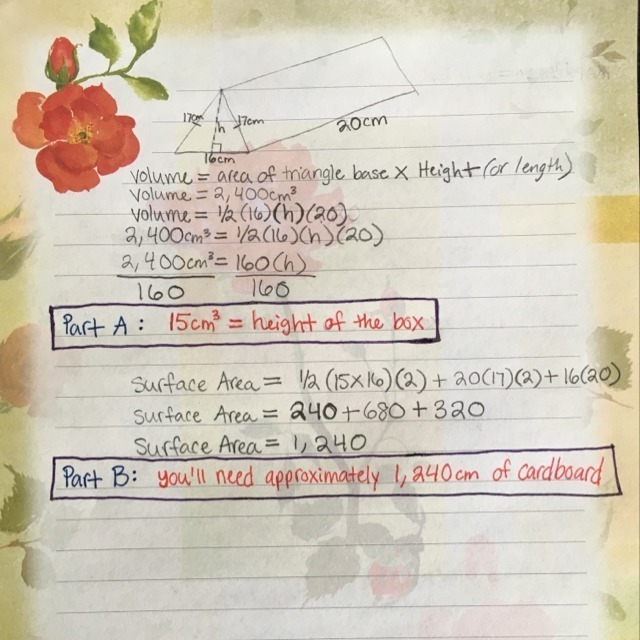 17cm h 17cm
20cm
16cm
volume = area of triangle base x Height (or length)
volume = 2,400cm³
volume = 1/2 (16)(h)(20)
2,400cm³ = 1/2 (16)(h)(20)
2,400cm³ = 160(h)
160 160
Part A: 15cm³ = height of the box
Surface Area = 1/2 (15x16)(2) + 20(17)(2) + 16(20)
Surface Area = 240 + 680 + 320
Surface Area = 1,240
Part B: you'll need approximately 1,240cm of cardboard